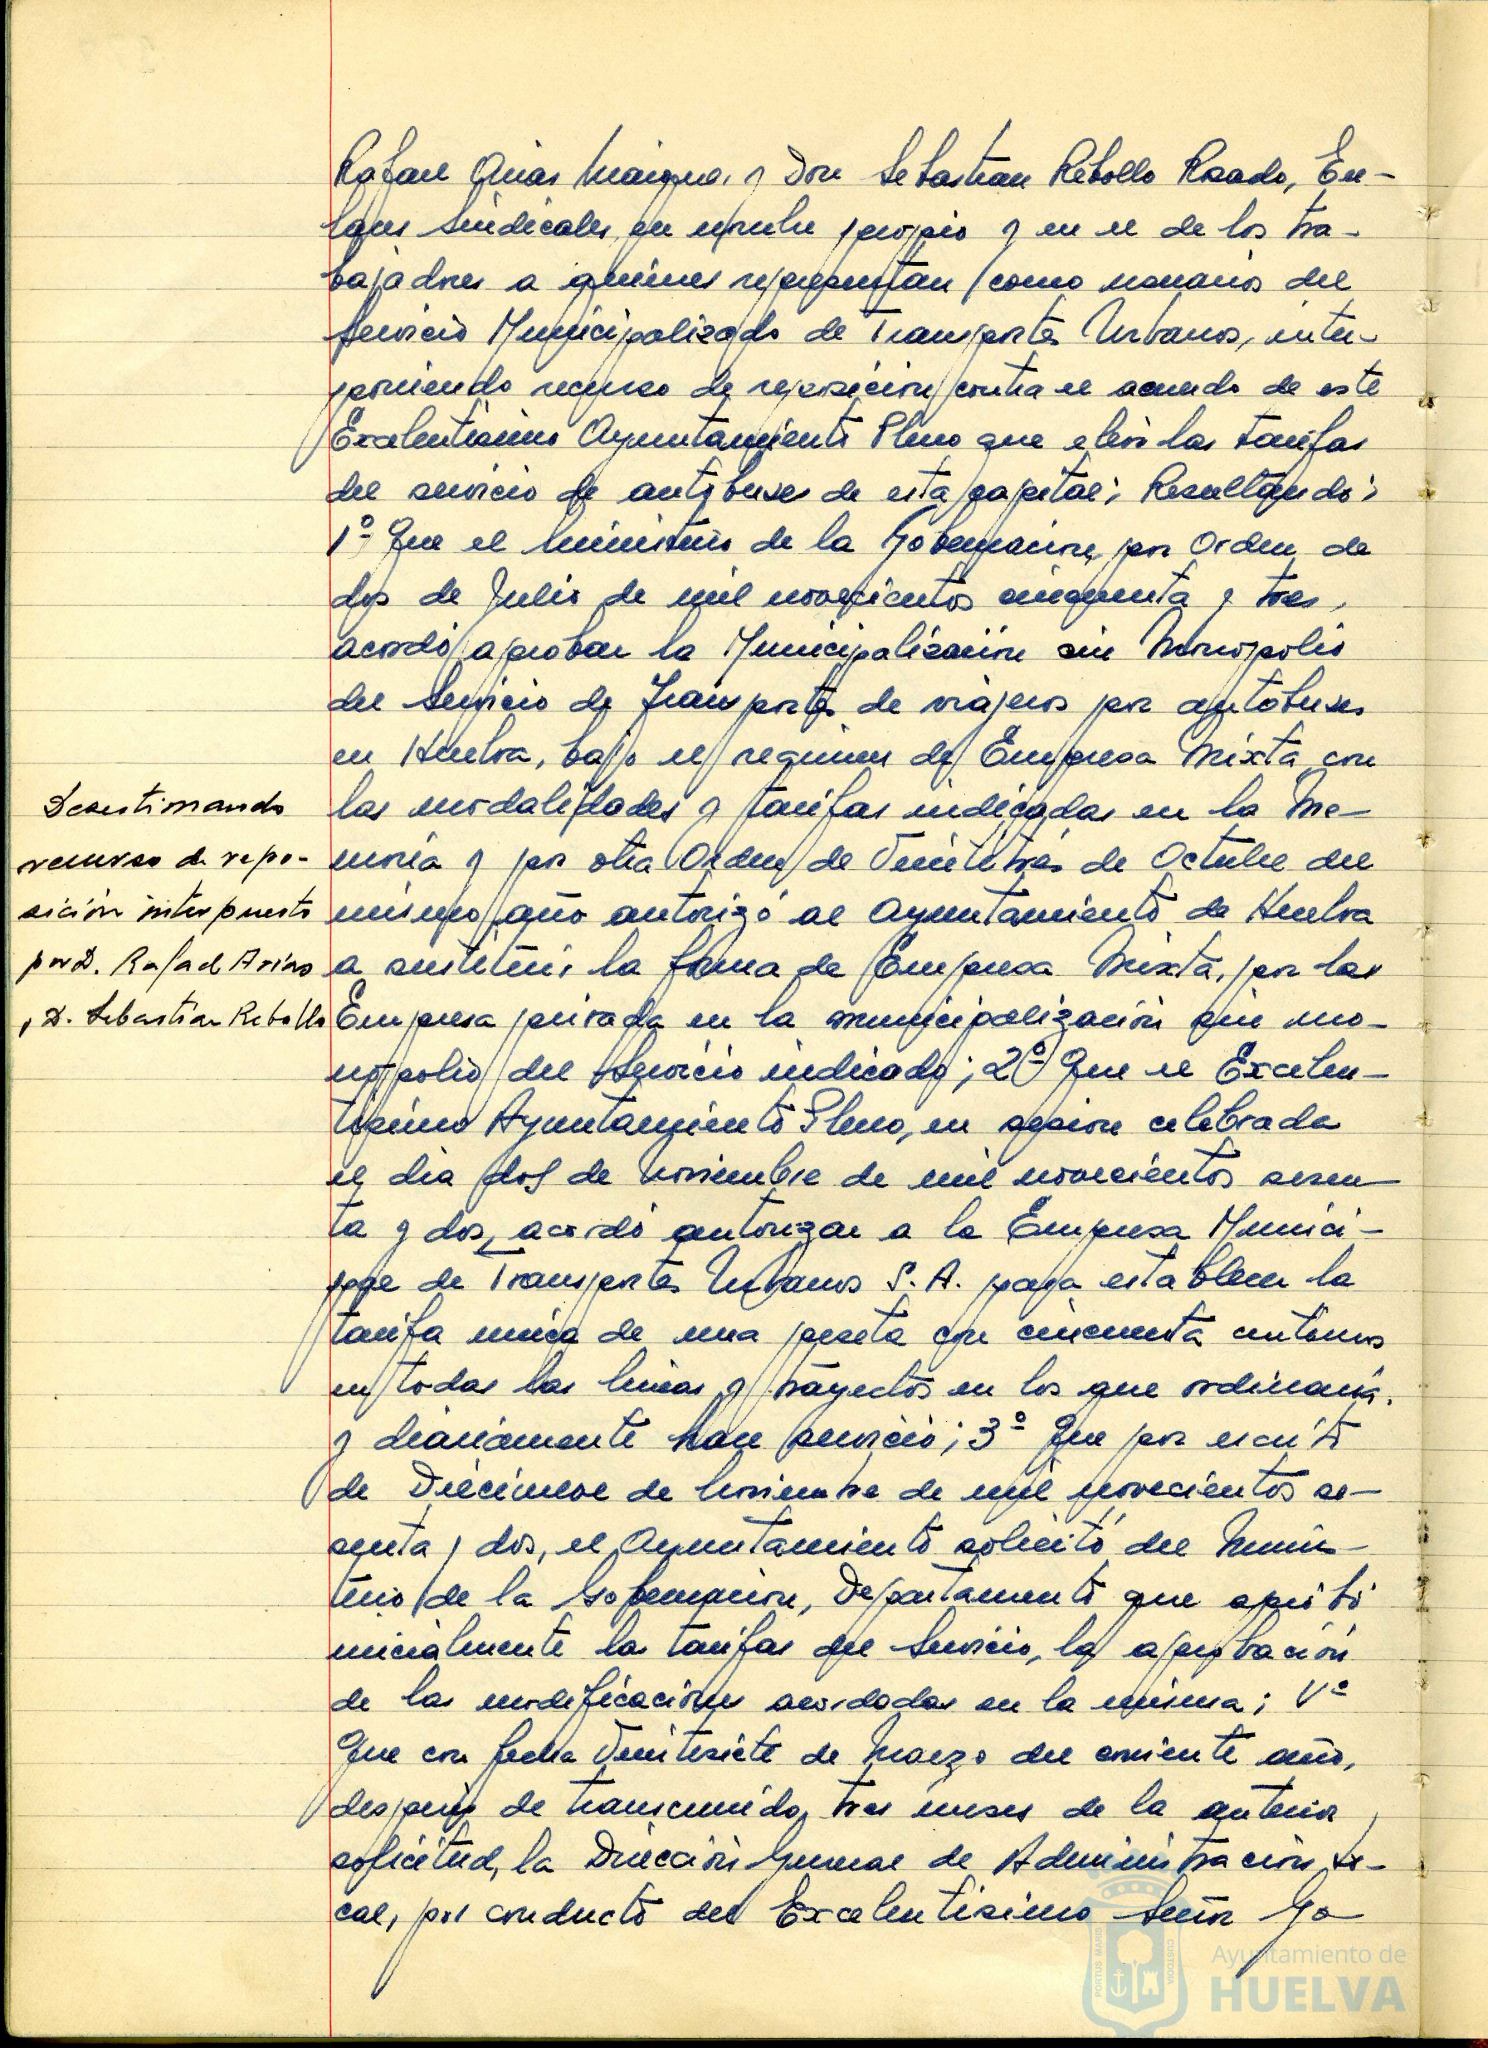 Rafael Arias Márquez y Don Sebastian Rebollo Rosado, En-
laces Sindicales, en nombre propio y en el de los tra-
bajadores a quienes representan como usuarios del
Servicio Municipalizado de Transportes Urbanos, inter-
poniendo recurso de reposicion contra el acuerdo de este
Excelentisimo Ayuntamiento Pleno que elevó las tarifas
del servicio de autobuses de esta capital; Resultando:
1º Que el Ministerio de la Gobernacion, por Orden de
dos de Julio de mil novecientos cincuenta y tres,
acordó aprobar la Municipalización sin Monopolio
del Servicio de Transportes de viajeros por autobuses
en Huelva, bajo el regimen de Empresa Mixta con
las modalidades y tarifas indicadas en la Me-
moria y por otra Orden de Veintitres de Octubre del
mismo año autorizó al Ayuntamiento de Huelva
a sustituir la forma de Empresa Mixta, por la
Empresa privada en la municipalización sin mo-
nopolio del Servicio indicado; 2º Que el Excelen-
tisimo Ayuntamiento Pleno, en sesion celebrada
el dia dos de Noviembre de mil novecientos sesen-
ta y dos, acordó autorizar a la Empresa Munici-
pal de Transportes Urbanos S.A. para establecer la
tarifa unica de una peseta con cincuenta centimos
en todas las lineas y trayectos en los que ordinaria.
y diariamente hace servicio; 3º Que por escrito
de Diecinueve de Noviembre de mil novecientos se-
senta y dos, el Ayuntamiento solicitó del Minis-
terio de la Gobernacion, Departamento que aprobó
inicialmente las tarifas del Servicio, la aprobación
de las modificaciones acordadas en la misma; Vº
Que con fecha Veintisiete de Marzo del corriente año,
despues de transcurridos tres meses de la anterior
solicitud, la Dirección General de Administracion Lo-
cal, por conducto del Excelentisimo Señor Go
Desestimando
recurso de repo-
sición interpuesto
por D. Rafael Arias
y D. Sebastian Rebollo
PORTUS MARIS CUSTODIA
Ayuntamiento de
HUELVA